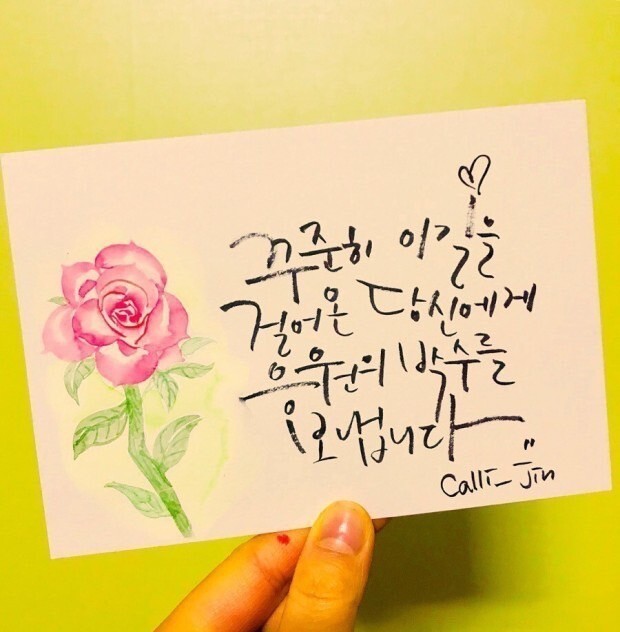 꾸준히 이길을
걸어온 당신에게
응원의 박수를
보냅니다
Calli_jin